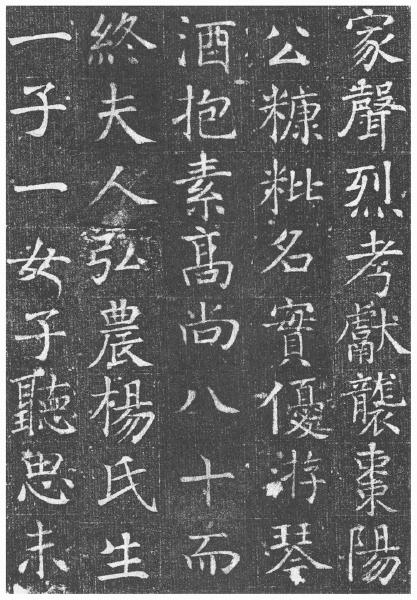 家聲烈考獻襲棗陽
公糠粃名實優游琴
酒抱素髙尚八十而
終夫人弘農楊氏生
一子一女子聽思未